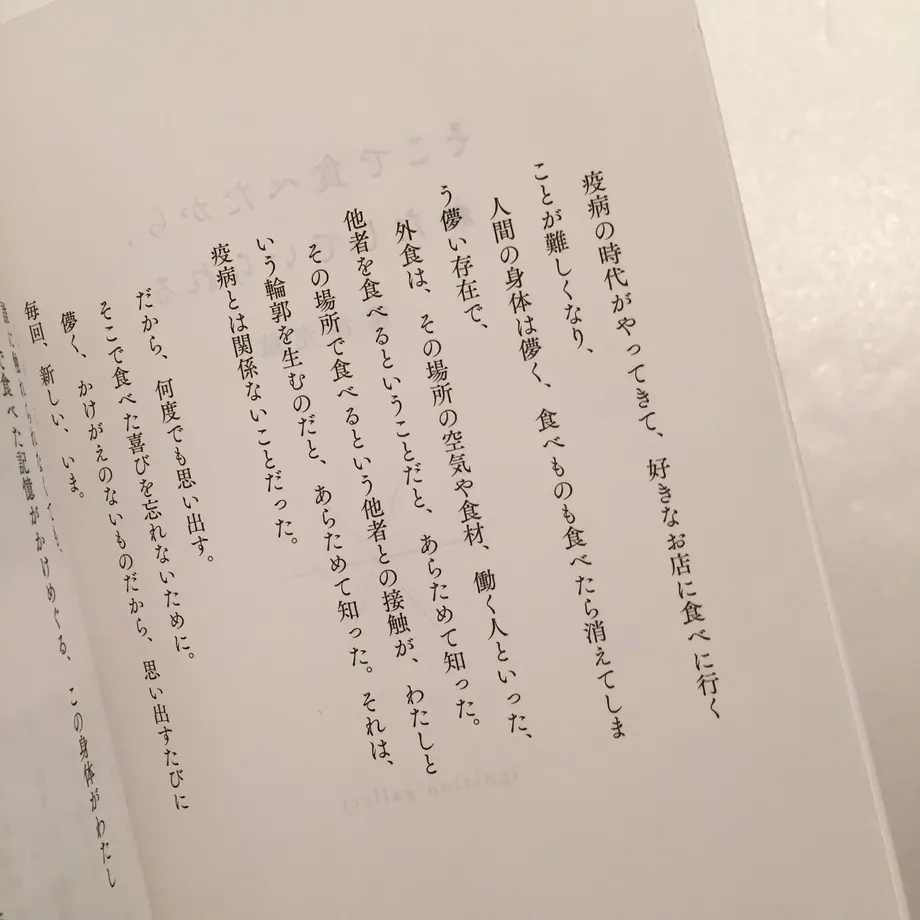 疫病の時代がやってきて、好きなお店に食べに行く
ことが難しくなり、
人間の身体は儚く、食べものも食べたら消えてしま
う儚い存在で、
外食は、その場所の空気や食材、働く人といった、
他者を食べるということだと、あらためて知った。
その場所で食べるという他者との接触が、わたしと
いう輪郭を生むのだと、あらためて知った。それは、
疫病とは関係ないことだった。
だから、何度でも思い出す。
そこで食べた喜びを忘れないために。
儚く、かけがえのないものだから、思い出すたびに
毎回、新しい、いま。
誰に触れられなくても、
で食べた記憶がかけめぐる、この身体がわたし
そこで食べたから、
ignition gallery